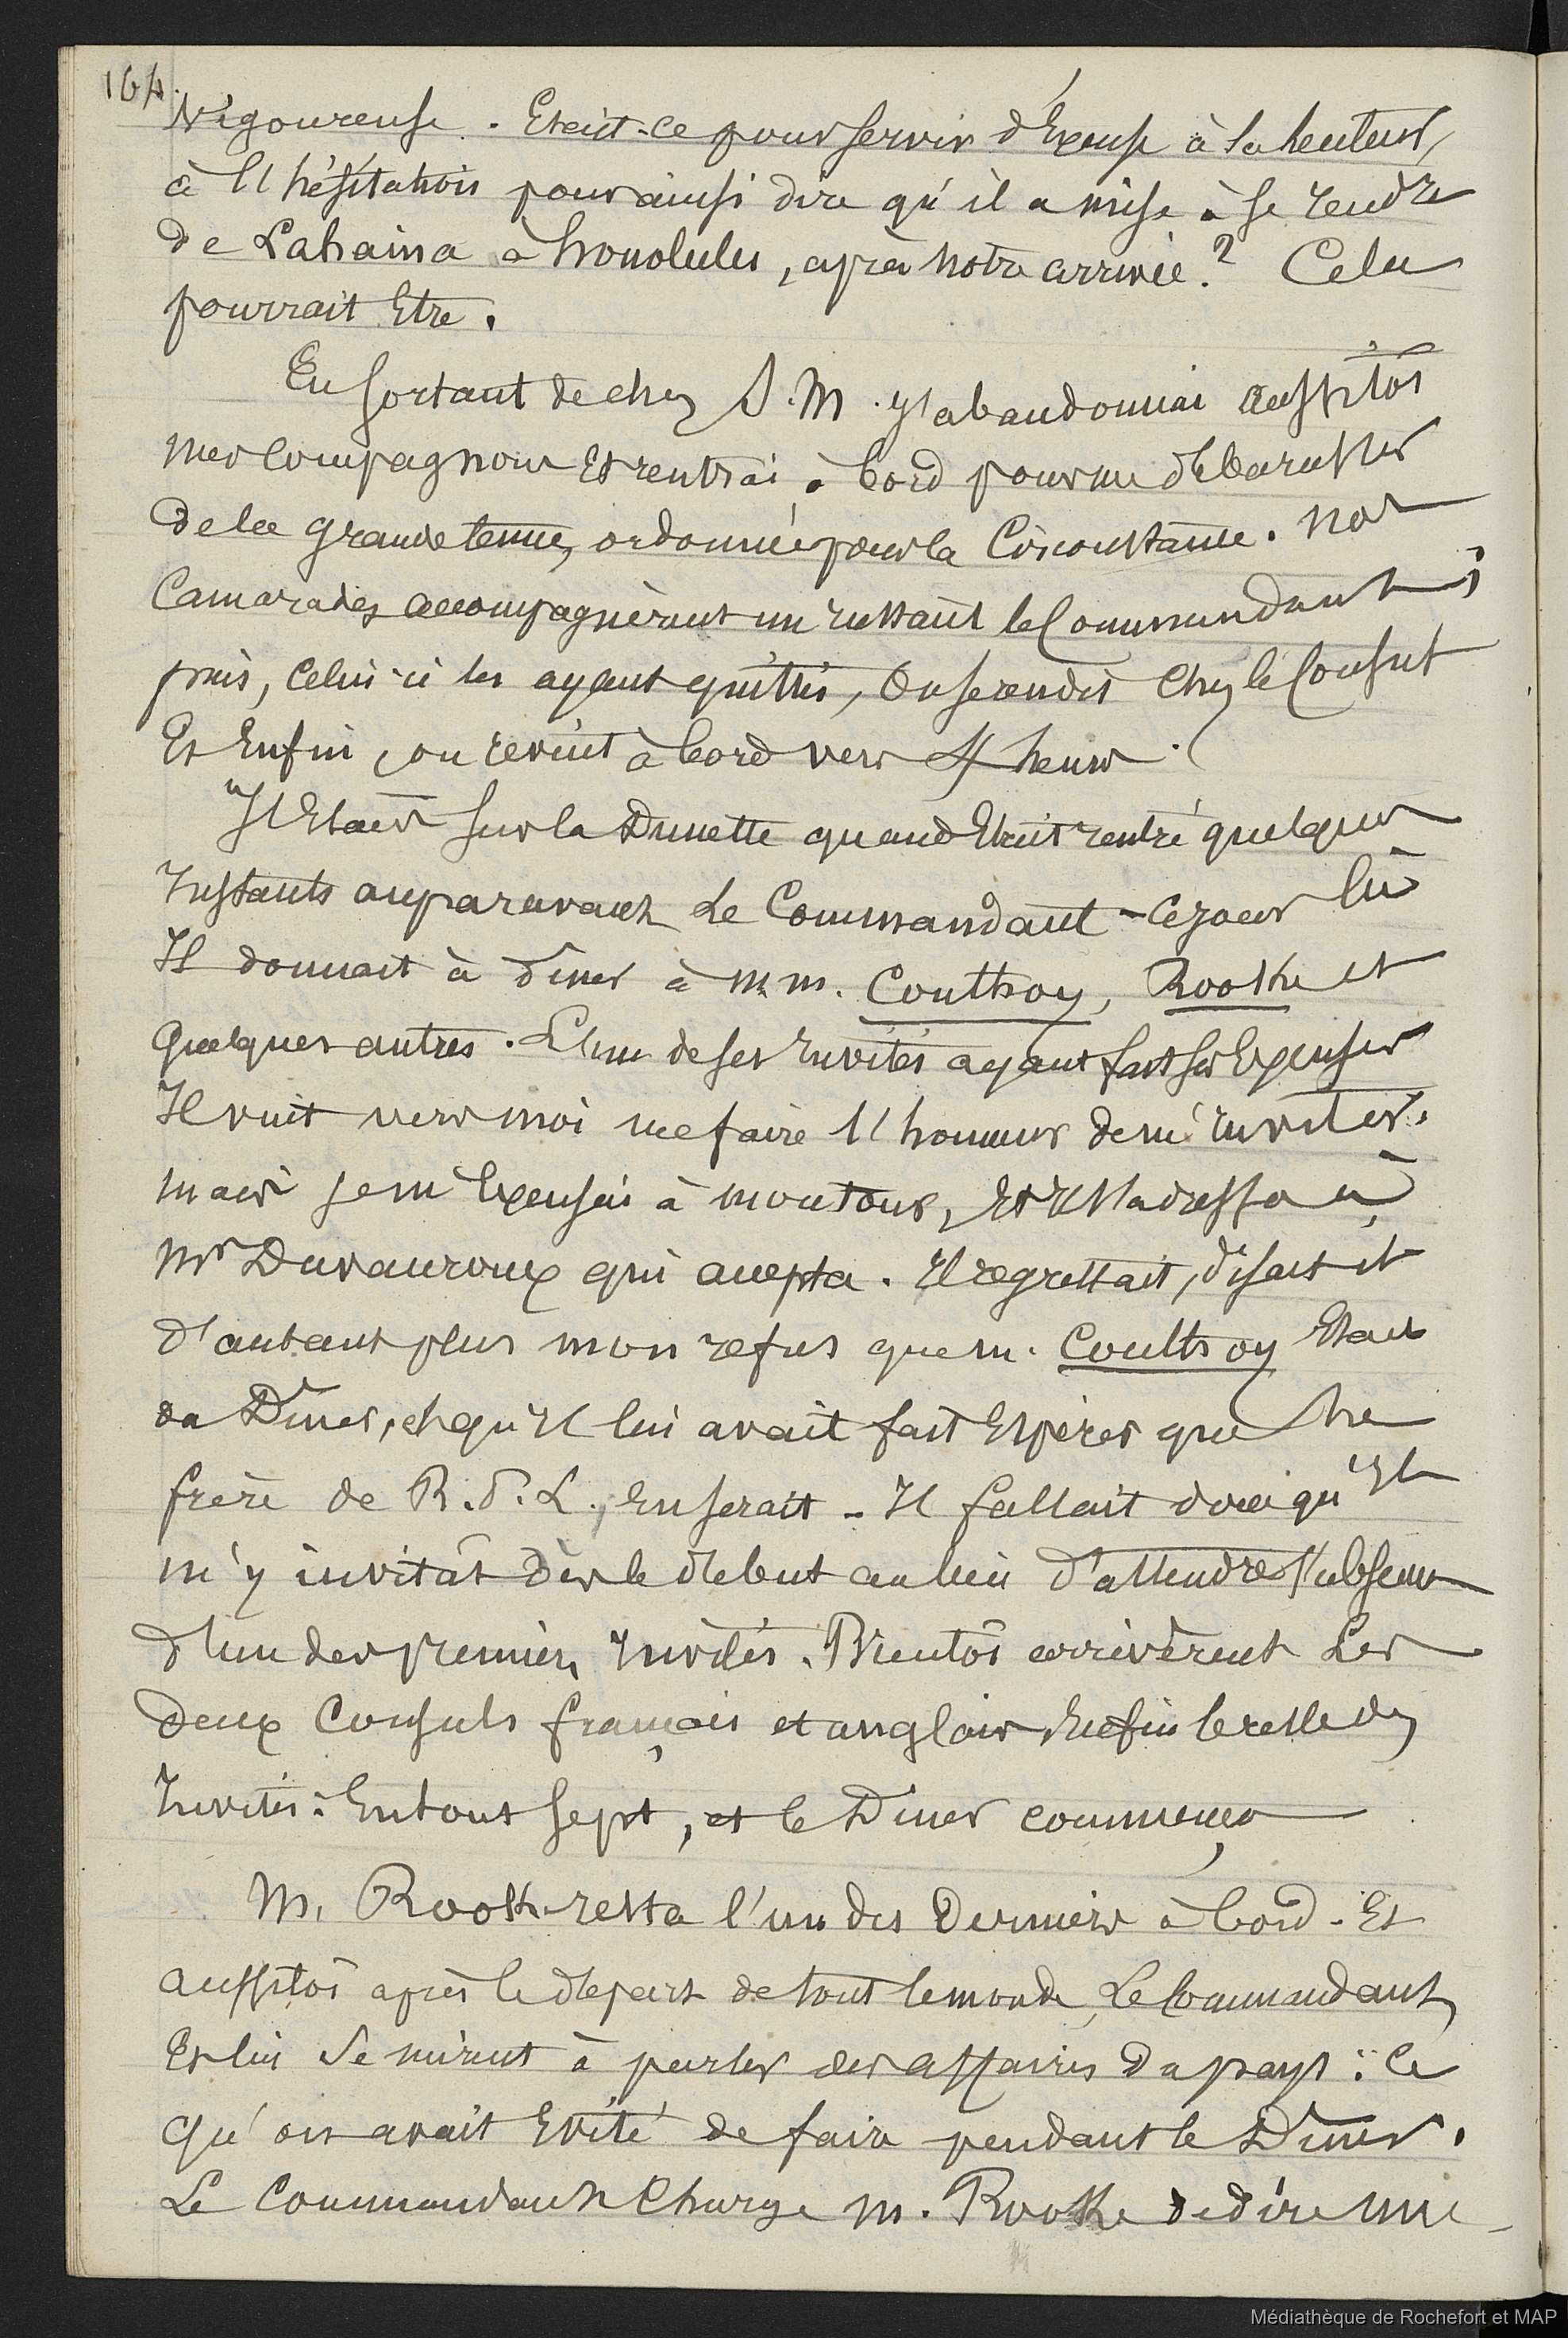 164.
Vigoureuse. Etait-ce pour servir d'Excuse à la lenteur,
à l'hésitation pour ainsi dire qu'il a mise à se rendre
de Lahaina à honolulu, après notre arrivée ? Cela
pourrait Etre.
En sortant de chez S. M. j'abandonnai aussitôt
mes Compagnons Et rentrai à bord pour me débarasser
de la grande tenue, ordonnée pour la Circonstance. Nos
Camarades accompagnèrent un instant le Commandant ;
puis, Celui-ci les ayant quittés, On se rendit Chez le Consul
Et Enfin, on revint à bord vers 4 heures.
J'Etais sur la Dunette quand Etait rentré quelques
Instants auparavant Le Commandant - Ce jour là
Il donnait à diner à M.M. Coulthoy, Rooke et
quelques autres. L'un de ses Invités ayant fait ses Excuses
Il vint vers moi me faire l'honneur de m'inviter.
Mais je m'Excusai à mon tour, Et Il s'adressa à
Mr Duvauroux qui accepta. Il regrettait, disait il
d'autant plus mon refus que M. Coulthoy Etait
du Diner, et qu'Il lui avait fait Espérer que le
frère de R. P. L., en serait - Il fallait donc qu'Il
m'y invitât dès le début au lieu d'attendre l'absence
d'un des premiers Invités. Bientôt arrivèrent Les
deux Consuls français et anglais Enfin le reste des
Invités : En tout sept, et le Diner commença
M. Rooke resta l'un des Derniers à bord. Et
aussitôt après le départ de tout le monde, Le Commandant
Et lui se mirent à parler des affaires du pays : Ce
qu'on avait Evité de faire pendant le Diner.
Le Commandant Charge M. Rooke de dire une
Médiathèque de Rochefort et MAP